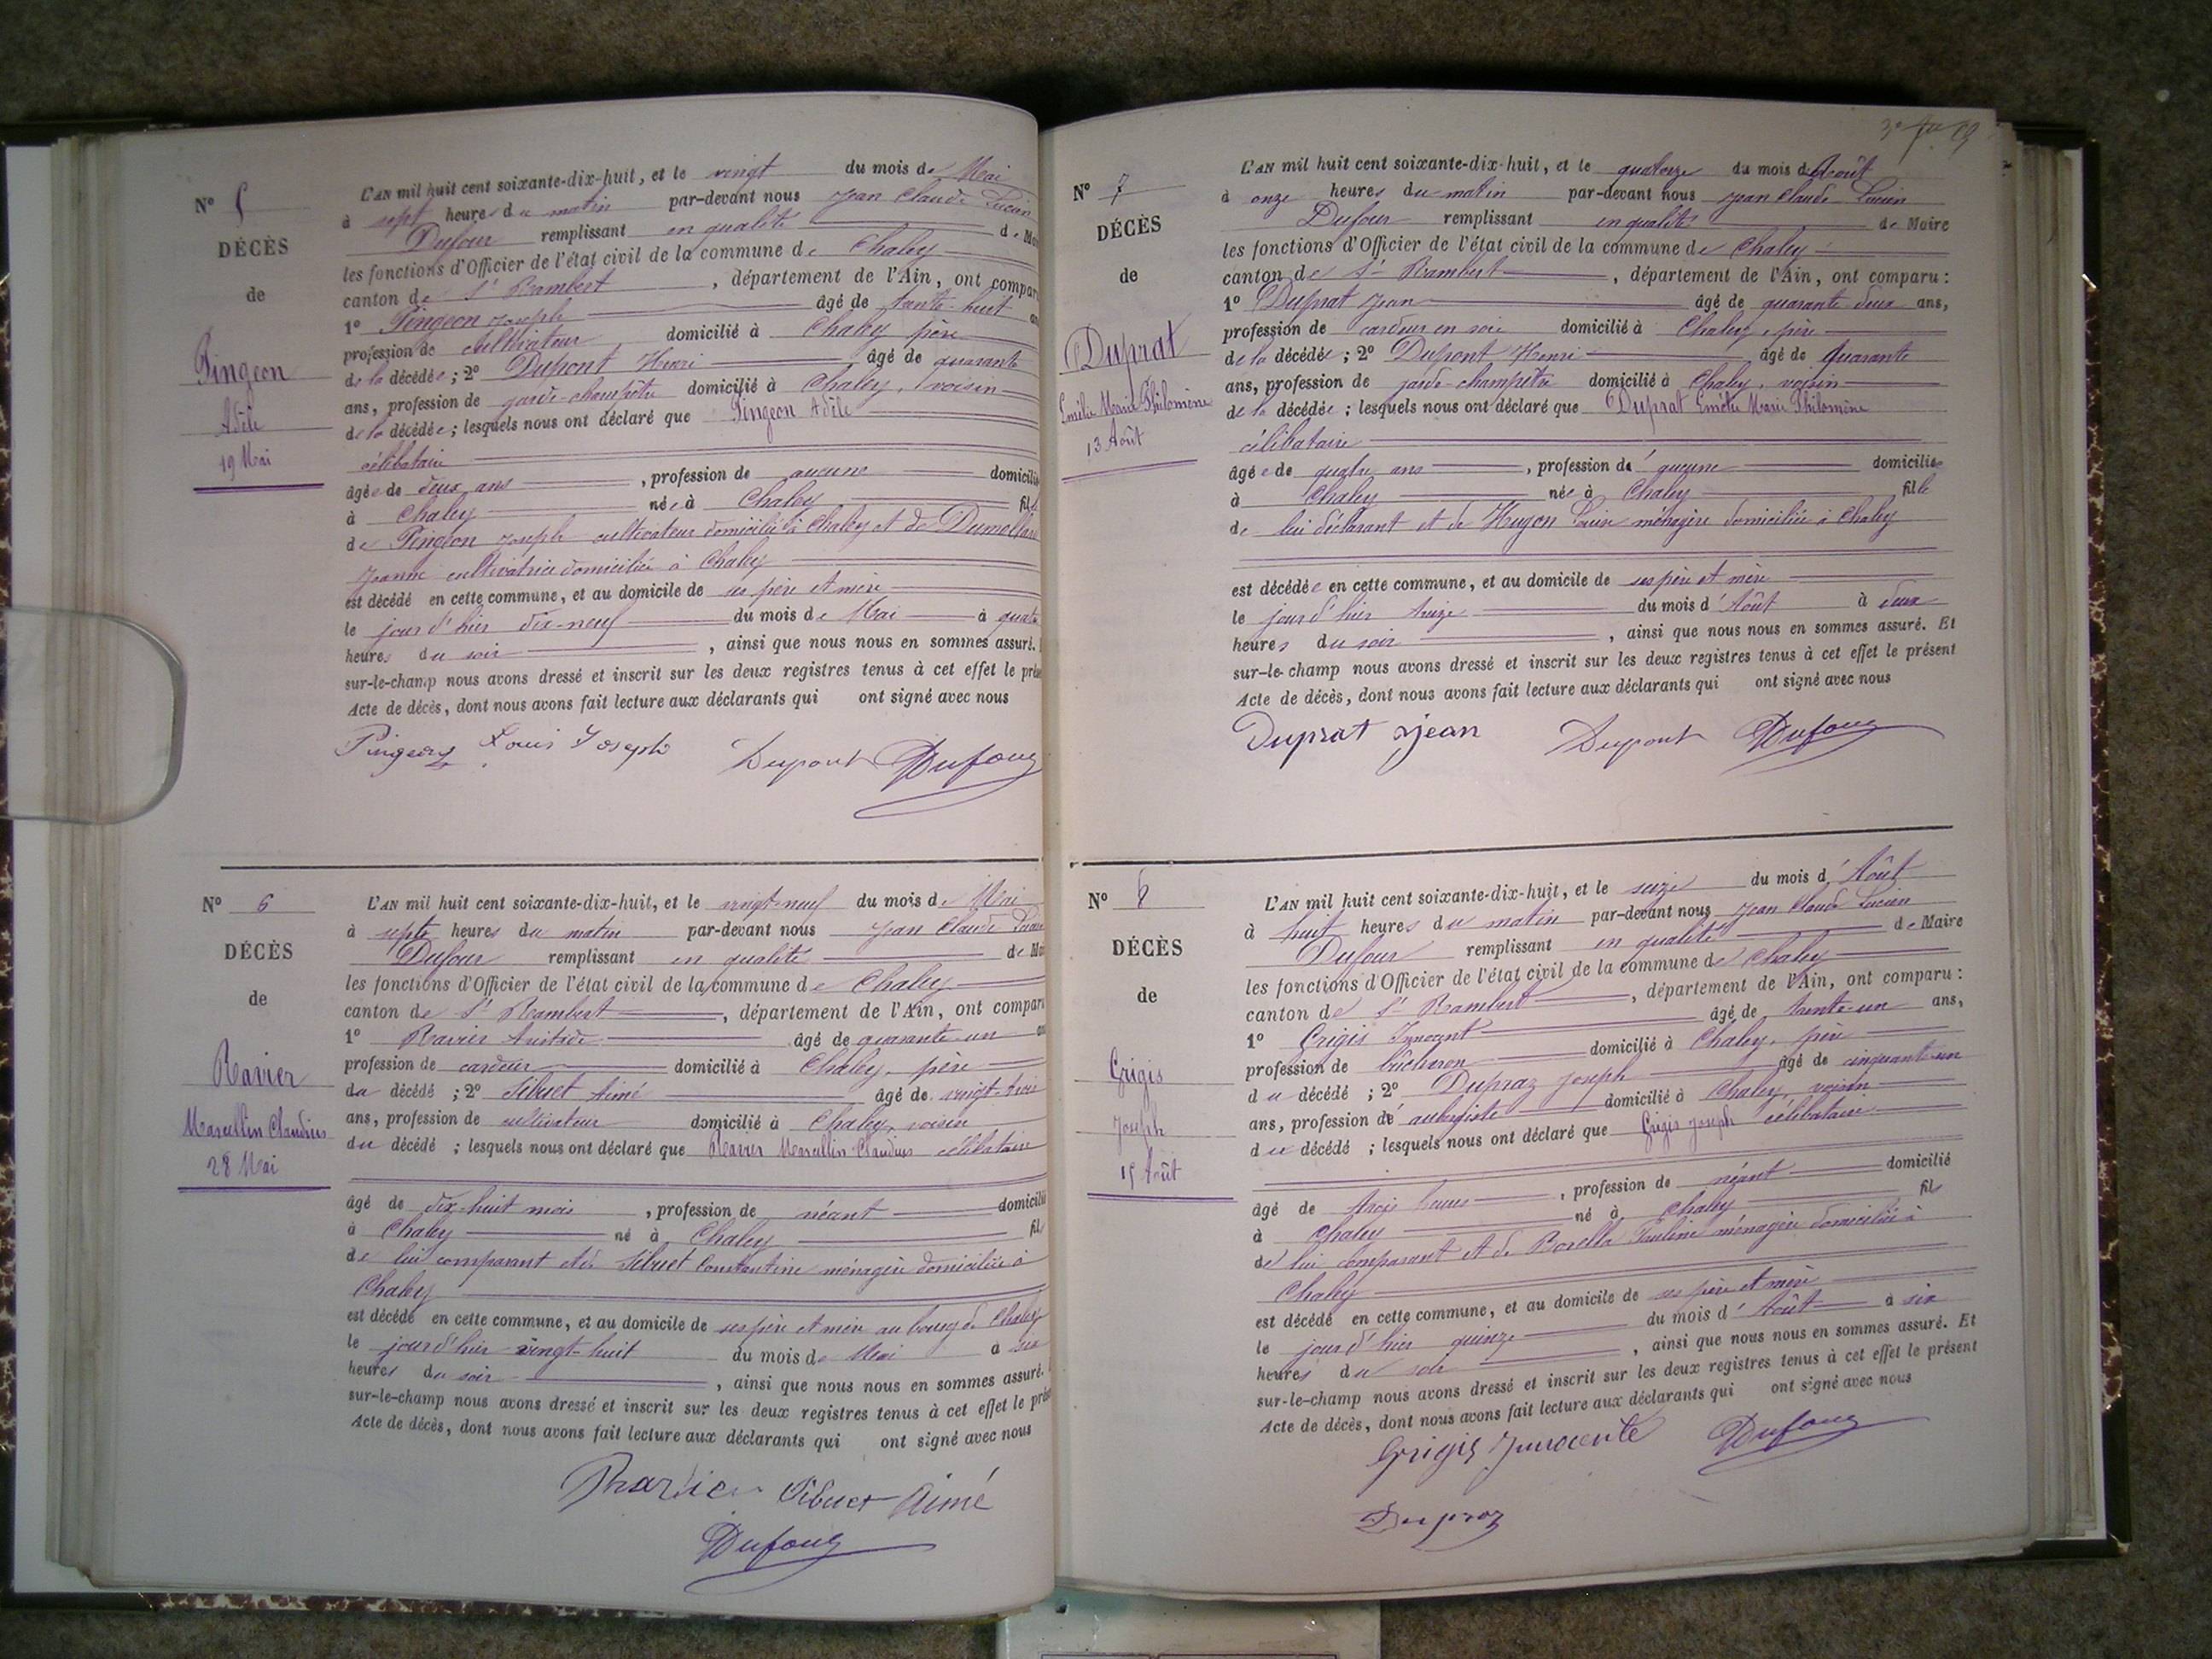 Nº 5
DÉCÈS
de
Pingeon
Adèle
19 Mai
L'AN mil huit cent soixante-dix-huit, et le vingt du mois de Mai
à sept heures du matin par-devant nous Jean Claude Lucien
Dufour remplissant en qualité de Mai
les fonctions d'Officier de l'état civil de la commune de Chaley
canton de St Rambert, département de l'Ain, ont compar
1º Pingeon Joseph âgé de trente-huit an
profession de cultivateur domicilié à Chaley père
de la décédée ; 2º Dupont Henri âgé de quarante
ans, profession de garde-champêtre domicilié à Chaley, voisin
de la décédée ; lesquels nous ont déclaré que Pingeon Adèle
célibataire
âgée de deux ans, profession de aucune domicilié
à Chaley née à Chaley fille
de Pingeon Joseph cultivateur domicilié à Chaley et de Dumollard
Jeanne cultivatrice domiciliée à Chaley
est décédé en cette commune, et au domicile de ses père et mère
le jour d'hier dix-neuf du mois de Mai à quatre
heures du soir, ainsi que nous nous en sommes assuré.
sur-le-champ nous avons dressé et inscrit sur les deux registres tenus à cet effet le prése
Acte de décès, dont nous avons fait lecture aux déclarants qui ont signé avec nous
Pingeon Louis Joseph Dupont Dufour
Nº 6
DÉCÈS
de
Ravier
Marcellin Claudius
28 Mai
L'AN mil huit cent soixante-dix-huit, et le vingt-neuf du mois de Mai
à sept heures du matin par-devant nous Jean Claude Lucien
Dufour remplissant en qualité de Mai
les fonctions d'Officier de l'état civil de la commune de Chaley
canton de St Rambert, département de l'Ain, ont compar
1º Ravier Aristide âgé de quarante-un an
profession de cardeur domicilié à Chaley, père
du décédé ; 2º Sibuet Aimé âgé de vingt-trois
ans, profession de cultivateur domicilié à Chaley, voisin
du décédé ; lesquels nous ont déclaré que Ravier Marcellin Claudius célibataire
âgé de dix-huit mois, profession de néant domicilié
à Chaley né à Chaley fils
de lui comparant et de Sibuet Constantine ménagère domiciliée à
Chaley
est décédé en cette commune, et au domicile de ses père et mère au bourg de Chaley
le jour d'hier vingt-huit du mois de Mai à six
heures du soir, ainsi que nous nous en sommes assuré.
sur-le-champ nous avons dressé et inscrit sur les deux registres tenus à cet effet le prése
Acte de décès, dont nous avons fait lecture aux déclarants qui ont signé avec nous
Sibuet Aimé
Dufour
Nº 7
DÉCÈS
de
Duprat
Emélie Marie Philomène
13 Août
L'AN mil huit cent soixante-dix-huit, et le quatorze du mois d'Août
à onze heures du matin par-devant nous Jean Claude Lucien
Dufour remplissant en qualité de Maire
les fonctions d'Officier de l'état civil de la commune de Chaley
canton de St Rambert, département de l'Ain, ont comparu :
1º Duprat Jean âgé de quarante deux ans,
profession de cardeur en soie domicilié à Chaley, père
de la décédée ; 2º Dupont Henri âgé de quarante
ans, profession de garde-champêtre domicilié à Chaley, voisin
de la décédée ; lesquels nous ont déclaré que Duprat Emélie Marie Philomène
célibataire
âgée de quatre ans, profession de aucune domiciliée
à Chaley née à Chaley fille
de lui déclarant et de Hugon Louise ménagère domiciliée à Chaley
est décédée en cette commune, et au domicile de ses père et mère
le jour d'hier treize du mois d'Août à deux
heures du soir, ainsi que nous nous en sommes assuré. Et
sur-le-champ nous avons dressé et inscrit sur les deux registres tenus à cet effet le présent
Acte de décès, dont nous avons fait lecture aux déclarants qui ont signé avec nous
Duprat Jean Dupont Dufour
Nº 8
DÉCÈS
de
Grigis
Joseph
15 Août
L'AN mil huit cent soixante-dix-huit, et le seize du mois d'Août
à huit heures du matin par-devant nous Jean Claude Lucien
Dufour remplissant en qualité de Maire
les fonctions d'Officier de l'état civil de la commune de Chaley
canton de St Rambert, département de l'Ain, ont comparu :
1º Grigis Innocent âgé de trente-un ans,
profession de bûcheron domicilié à Chaley, père
du décédé ; 2º Dupraz Joseph âgé de cinquante-un
ans, profession de aubergiste domicilié à Chaley, voisin
du décédé ; lesquels nous ont déclaré que Grigis Joseph célibataire
âgé de trois heures, profession de néant domicilié
à Chaley né à Chaley fils
de lui comparant et de Borella Pauline ménagère domiciliée à
Chaley
est décédé en cette commune, et au domicile de ses père et mère
le jour d'hier quinze du mois d'Août à six
heures du soir, ainsi que nous nous en sommes assuré. Et
sur-le-champ nous avons dressé et inscrit sur les deux registres tenus à cet effet le présent
Acte de décès, dont nous avons fait lecture aux déclarants qui ont signé avec nous
Grigis Innocente Dufour
Dupraz